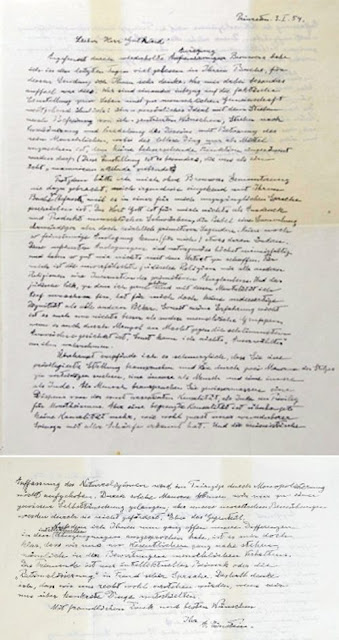 Princeton. 3. I. 54.
Lieber Herr Gutkind!
Angefeuert durch wiederholte Anregung Brouwers habe
ich in den letzten Tagen viel gelesen in Ihrem Buche, für
dessen Sendung ich Ihnen sehr danke. Was mir dabei besonders
auffiel war dies. Wir sind einander inbezug auf die faktische
Einstellung zum Leben und zur menschlichen Gemeinschaft
weitgehend ähnlich: persönliches Ideal mit dem Streben
nach Befreiung von ich-zentrierten Wünschen, Streben nach
Verschönerung und Veredelung des Daseins mit Betonung des
rein Menschlichen, wobei das leblose Ding nur als Mittel
anzusehen ist, dem keine beherrschende Funktion eingeräumt
werden darf. (Diese Einstellung ist es besonders, die uns als ein
echt „unamerican attitude" verbindet.)
Trotzdem hätte ich mich ohne Brouwers Ermunterung
nie dazu gebracht, mich irgendwie eingehend mit Ihrem
Buche zu befassen, weil es in einer für mich unzugänglichen Sprache
geschrieben ist. Das Wort Gott ist für mich nichts als Ausdruck
und Produkt menschlicher Schwächen, die Bibel eine Sammlung
ehrwürdiger aber doch reichlich primitiver Legenden. Keine noch
so feinsinnige Auslegung kann (für mich) etwas daran ändern.
Diese verfeinerten Auslegungen sind naturgemäss höchst mannigfaltig
und haben so gut wie nichts mit dem Urtext zu schaffen. Für
mich ist die unverfälschte jüdische Religion wie alle anderen
Religionen eine Incarnation des primitiven Aberglaubens. Und das
jüdische Volk, zu dem ich gern gehöre und mit dessen Mentalität ich
tief verwachsen bin, hat für mich doch keine andersartige
Dignität als alle anderen Völker. Soweit meine Erfahrung reicht
ist es auch um nichts besser als andere menschliche Gruppen
wenn es auch durch Mangel an Macht gegen die schlimmsten
Auswüchse gesichert ist. Sonst kann ich nichts „Auserwähltes"
an ihm wahrnehmen.
Überhaupt empfinde ich es schmerzlich, dass Sie eine
privilegierte Stellung beanspruchen und sie durch zwei Mauern des Stolzes
zu verteidigen suchen, eine äussere als Mensch und eine innere
als Jude. Als Mensch beanspruchen Sie gewissermassen einen
Dispens von der sonst acceptierten Kausalität, als Jude ein Privileg
für Monotheismus. Aber eine begrenzte Kausalität ist überhaupt
keine Kausalität mehr, wie wohl zuerst unser wunderbarer
Spinoza mit aller Schärfe erkannt hat. Und die animistische
Auffassung der Naturreligionen wird im Prinzip durch Monopolisierung
nicht aufgehoben. Durch solche Mauern können wir nur zu einer
gewissen Selbsttäuschung gelangen; aber unsere moralischen Bemühungen
werden durch sie nicht gefördert. Eher das Gegenteil.
Nachdem ich Ihnen nun ganz offen unsere Differenzen
in den intellektuellen Überzeugungen ausgesprochen habe, ist es mir doch
klar, dass wir uns im Wesentlichen ganz nahe stehen,
nämlich in den Bewertungen menschlichen Verhaltens.
Das Trennende ist nur intellektuelles Beiwerk oder die
„Rationalisierung" in Freud'scher Sprache. Deshalb denke
ich, dass wir uns recht wohl verstehen würden, wenn wir
uns über konkrete Dinge unterhielten.
Mit freundlichem Dank und besten Wünschen
Ihr A. Einstein.